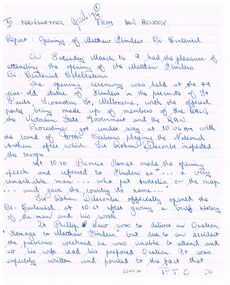 TO NEWSLETTER FROM IAN
Report - Opening of Matthew Flinders Bi-Centennial
On Saturday March 16 I had the pleasure of
attending the opening of the Matthew Flinders
Bi-Centennial Celebrations
The opening ceremony was held at the
old statue of Flinders in the precincts of St
Paul's, Melbourne, with the official
party being made up of members of the
the Victorian State Government and the RAN
Proceedings got under way at 10.00 AM with
the band of HMAS Cerberus playing the National
Anthem after which Sir Rohan Delacombe inspected
the troops
At 10.10 Premier Hamer made the opening
speech and referred to Flinders as "... a very
remarkable man... who put Australia on the map
... and gave the country its name...
Sir Rohan Delacombe officially opened the
Bi-Centennial at 10.25 after giving a brief history
of the man and his work
was to deliver an Oration,
"Homage to Matthew Flinders", but due to an accident
the previous weekend he was unable to attend and
so his wife read his prepared Oration. It was
expertly written and pointed to the fact that
P.T.O.